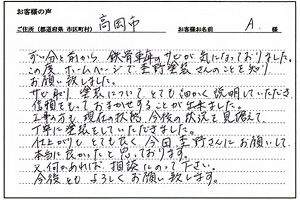 お客様の声
ご住所（都道府県 市区町村） 高岡市 お客様お名前 A. 様
ずい分と前から、鉄骨車庫のサビが気になっておりました。
この度、ホームページで圭野塗装さんのことを知り
お願い致しました。
サビ削り、塗装について、とても細かく説明していただき
信頼をもっておまかせすることが出来ました。
工事の方も、現在の状態、今後の状況を見据えて
丁寧に塗装をしていただきました。
仕上がりも、とても良く、今回、圭野さんにお願いして
本当に良かったと思っております。
又、何かあれば、相談にのって下さい。
今後とも よろしくお願い致します。